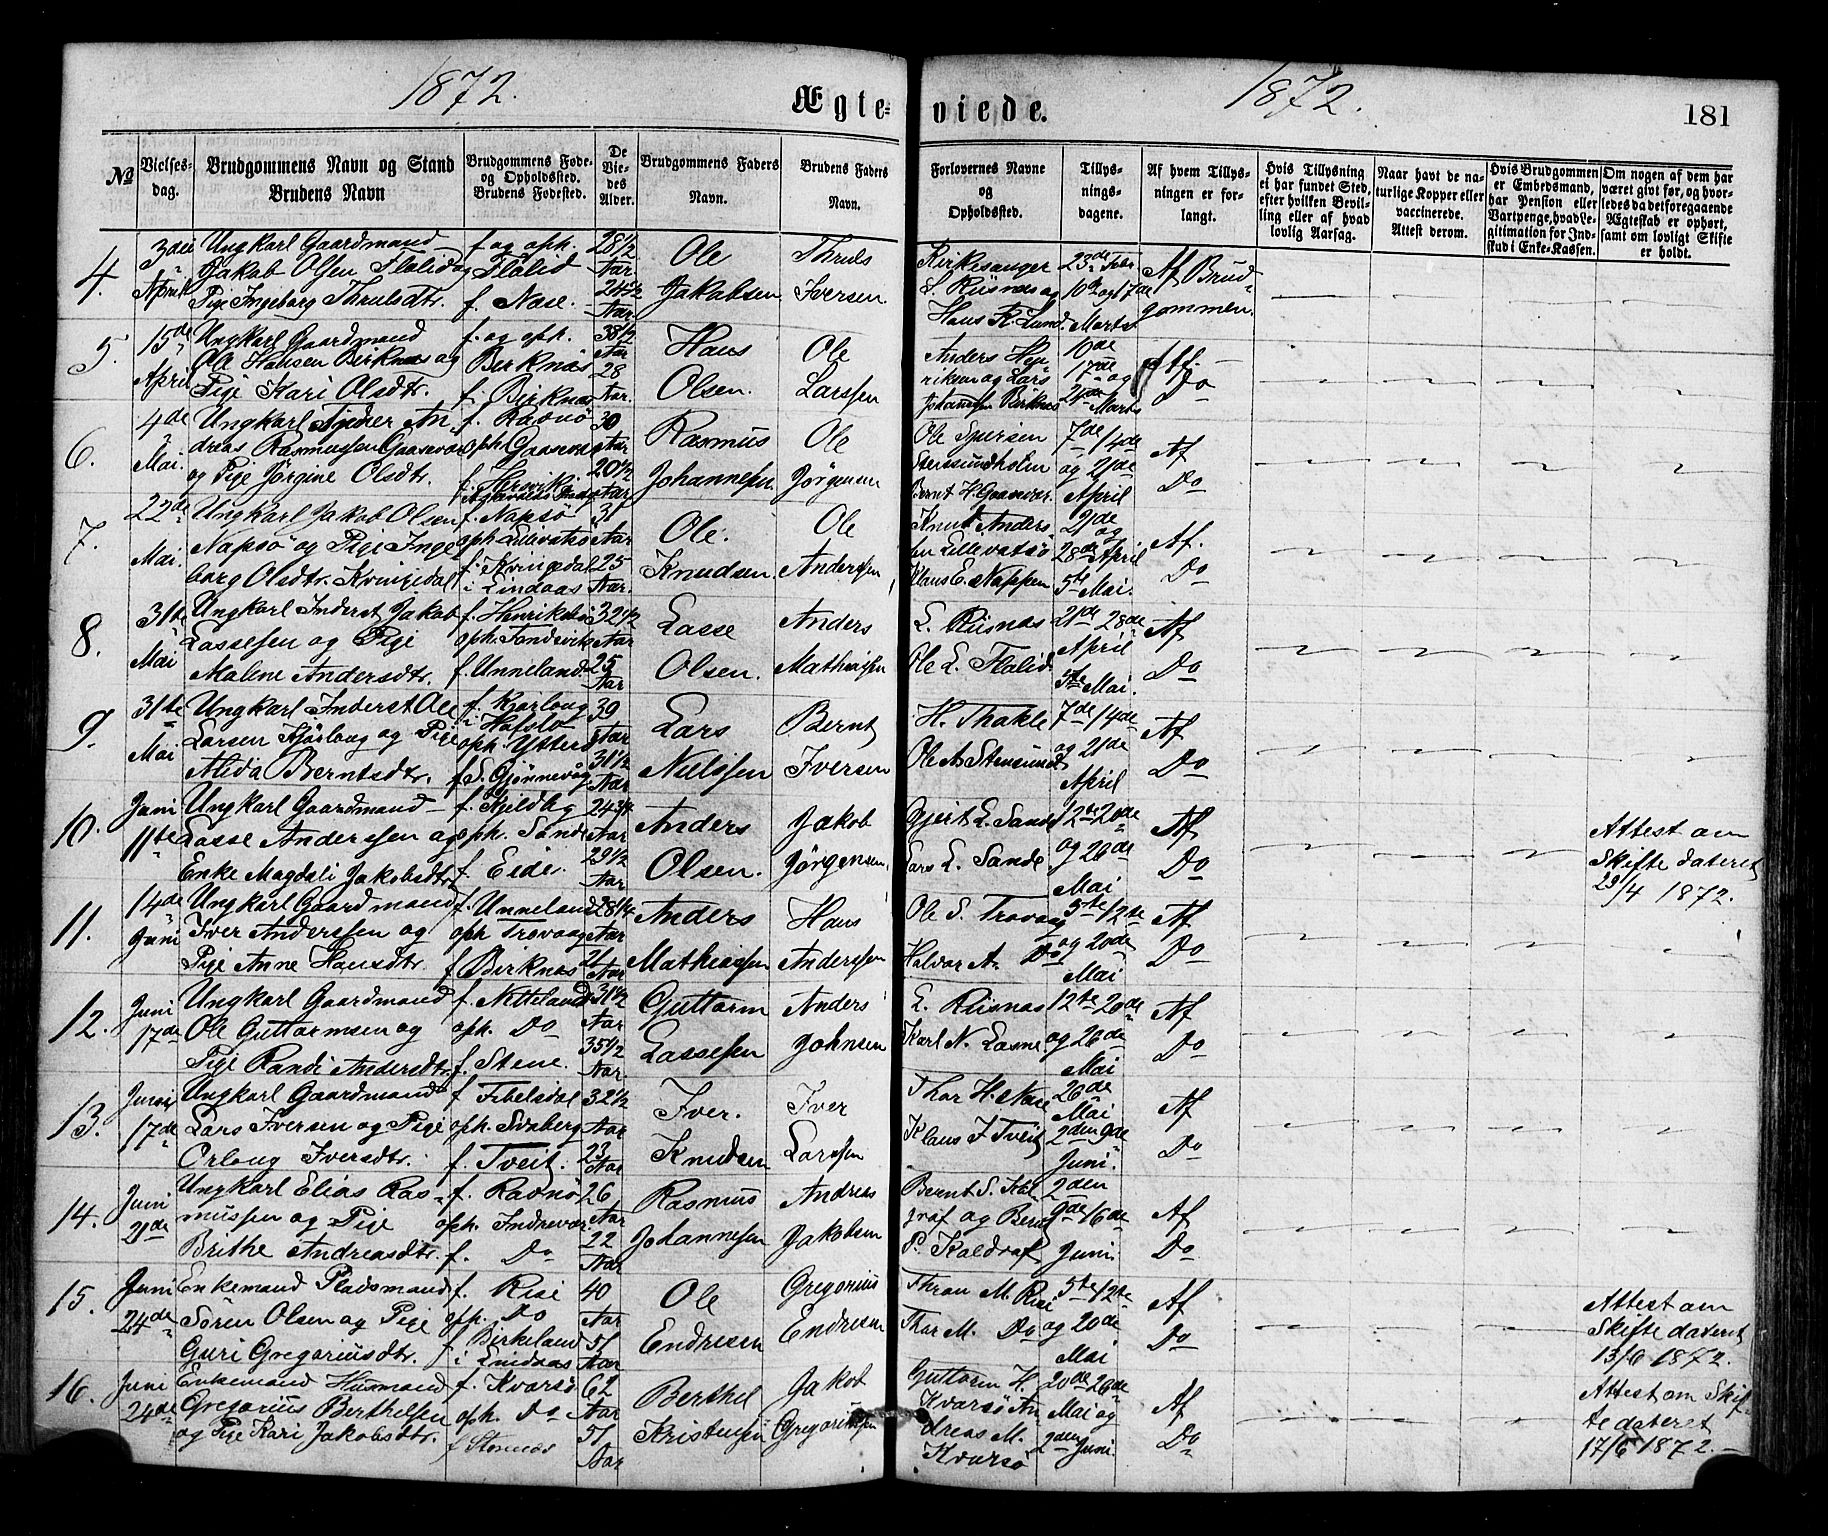 1872.
Ægte-
viede.
1872.
181
No
Vielses-
dag.
Brudgommens Navn og Stand
Brudens Navn
Brudgommens Føde-
og Opholdssted.
Brudens Fødested.
De
Vie-
des
Alder.
Brudgommens Faders
Navn.
Brudens Faders
Navn.
Forlovernes Navne
og
Opholdssted.
Tillys-
nings-
dagene.
Af hvem Tillys-
ningen er for-
langt.
Hvis Tillysning
ei har fundet Sted,
efter hvilken Bevil-
ling eller af hvad
lovlig Aarsag.
Naar havt de na-
turlige Kopper eller
vaccinerede.
Attest derom.
Hvis Brudgommen
er Embedsmand,
har Pension eller
Vartpenge, hvad Le-
gitimation for Ind-
skud i Enke-Kassen.
Om nogen af dem har
været givt før, og hvor-
ledes da det foregaaende
Ægteskab er ophørt,
samt om lovligt Skifte
er holdt.
4.
3die
April
Ungkarl Gaardmand
Jakob Olsen Flolid og
Pige Ingeborg Thrulsdtr.
f. og oph.
Flolid
f. Nase.
28 1/2
Aar
24 1/2
Aar.
Ole
Jakobsen
Thruls
Iversen
Kirkesanger
L. Risnæs og
Hans R. Lund.
23de Febr
10de og 17de
Marts.
Af Brud-
gommen.
5.
15de
April
Ungkarl Gaardmand
Ole Hansen Birknæs og
Pige Kari Olsdtr.
f. og oph.
Birknæs
f. Birknæs
38 1/2
Aar
28
Aar.
Hans
Olsen.
Ole
Larssen
Anders Hen
riksen og Lars
Johannssen Birknes
10de
17de
og
24de Marts
Af.
Do
6.
4de
Mai.
Ungkarl An
dreas Rasmussen Gaasevær
og Pige Jørgine Olsdtr.
f. Ravnø
oph. Gaasevær
30
Aar
20 1/2
Aar
Rasmus
Johannesen.
Ole
Jørgensen
Ole
Stensundholm
Bernt H. Gaasevær.
7de 14de
og 21de
April
Af
Do
7.
22de
Mai.
Ungkarl Jakob Olsen
Napsø og Pige Inge
borg Olsdtr. Kvingedal
f. Napsø
oph. Lillevatsø
f. Kvingedal
i Lindaas
31
Aar
25
Aar.
Ole.
Knudsen
Ole
Anderssen
Knut Anders
sen Lillevatsø
Klaus E. Nappen
21de
og
28de April
5te Mai.
Af.
Do
8.
31te
Mai
Ungkarl Inderst Jakob
Lassesen og Pige
Malene Andersdtr.
f. Henriksbø
oph.
f. Unneland.
32 1/2
Aar
25
Aar
Lasse
Olsen.
Anders
Mathiassen
L. Risnæs
Ole L. Flolid.
21de 28de
April
5te Mai.
Af
Do
9.
31te
Mai
Ungkarl Inderst Ole
Larsen Kjørlaug og Pige
Alida Berntsdtr.
f. Kjørlaug
i Hafslo
oph. Ytterø
f. S. Gjønnevåg
39
Aar
31 1/2
Aar
Lars
Nielssen
Bernt
Iversen
H. Thakle
Ole A. Stensund
7de 14de
og 21de
April
Af
Do
10.
Juni
11te
Ungkarl Gaardmand
Lasse Anderssen og
Enke Magdeli Jakobsdtr
f. Kjeldby
oph. Sande
f. Eide.
24 3/4
Aar
29 1/2
Aar
Anders
Olsen.
Jakob
Jørgensen.
Gjert L. Sande
Lars L. Sande
12te 20de
og 26de
Mai
Af
Do
Attest om
Skifte dateret
29/4 1872.
11.
14de
Juni
Ungkarl Gaardmand
Iver Anderssen og
Pige Anne Hansdtr.
f. Unneland
oph. Trovaag
f. Birknæs
28 1/4
Aar
21
Aar
Anders
Mathiassen
Hans
Anderssen
Ole S. Trovaag
Halvar A. Do
5te 12te
og 20de
Mai
Af
Do
12.
Juni
17de
Ungkarl Gaardmand
Ole Guttormsen og
Pige Randi Andersdtr.
f. Nitteland
oph. Do
f. Stene.
31 1/2
Aar
35 1/2
Aar
Guttorm
Lassesen
Anders
Johnsen
L. Risnæs
Karl N. Lasne.
12te 20de
og 26de
Mai
Af
Do
13.
Juni
17de
Ungkarl Gaardmand
Lars Iversen og Pige
Orlaug Iversdtr.
f. Fivelsdal
oph. Svaberg
f. Tveit.
32 1/2
Aar
23
Aar
Iver.
Knudsen
Iver
Larssen
Thor H. Nase
Klaus I Tveit
26de
Mai
2den 9de
Juni.
Af
Do
14.
Juni
21de
Ungkarl Elias Ras-
mussen og Pige
Brithe Andreasdtr.
f. Ravnø
oph. Indrevær
f. Do
26
Aar
22
Aar
Rasmus
Johannesen
Andreas
Jakobsen
Bernt S. Kal
graf og Bernt
P. Kaldraf
2den
9de 16de
Juni.
Af
Do
15.
Juni
24de
Enkemand Pladsmand
Søren Olsen og Pige
Guri Gregoriusdtr.
f. Risi
oph. Do
f. Birkeland
i Lindaas
40
Aar
51
Aar
Ole
Endresen
Gregorius
Endresen
Thron M. Risi
Thor M. Do
5te 12te
og 20de
Mai
Af
Do
Attest om
Skifte dateret
13/6 1872.
16.
Juni
24de
Enkemand Husmand
Gregorius Berthelsen
og Pige Kari Jakobsdtr.
f. Kvarsø
oph. Do
f Stornæs
62
Aar
51
Aar
Berthel
Kristensen
Jakob
Gregoriussen
Guttorm H.
Kvarsø An
dreas M.
Kvarsø
20de 26de
Mai og
2den Juni
Af
Do
Attest om Skif-
te dateret
17/6 1872.